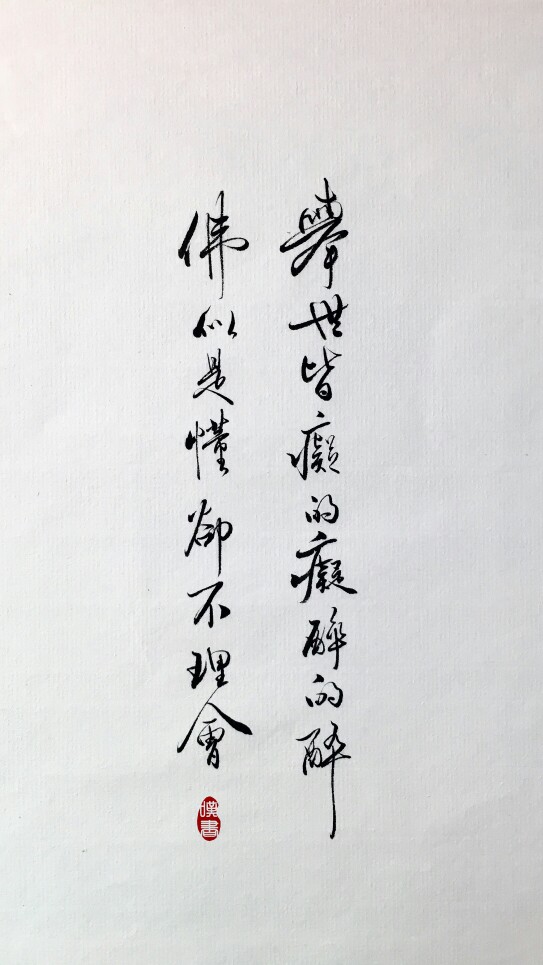 舉世皆癡的癡醉的醉
佛似是懂卻不理會
墣書